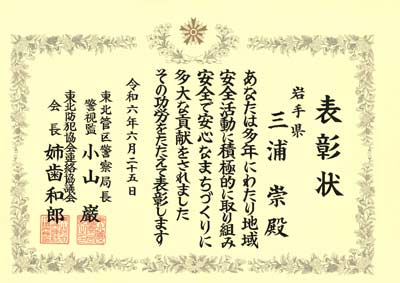 表彰状
岩手県
三浦崇殿
あなたは多年にわたり地域
安全活動に積極的に取り組み
安全で安心なまちづくりに
多大な貢献をされました
その功労をたたえて表彰します
令和六年六月二十五日
東北管区警察局長
警視監 小山巌
東北防犯協会連絡協議会
会長 姉歯和郎